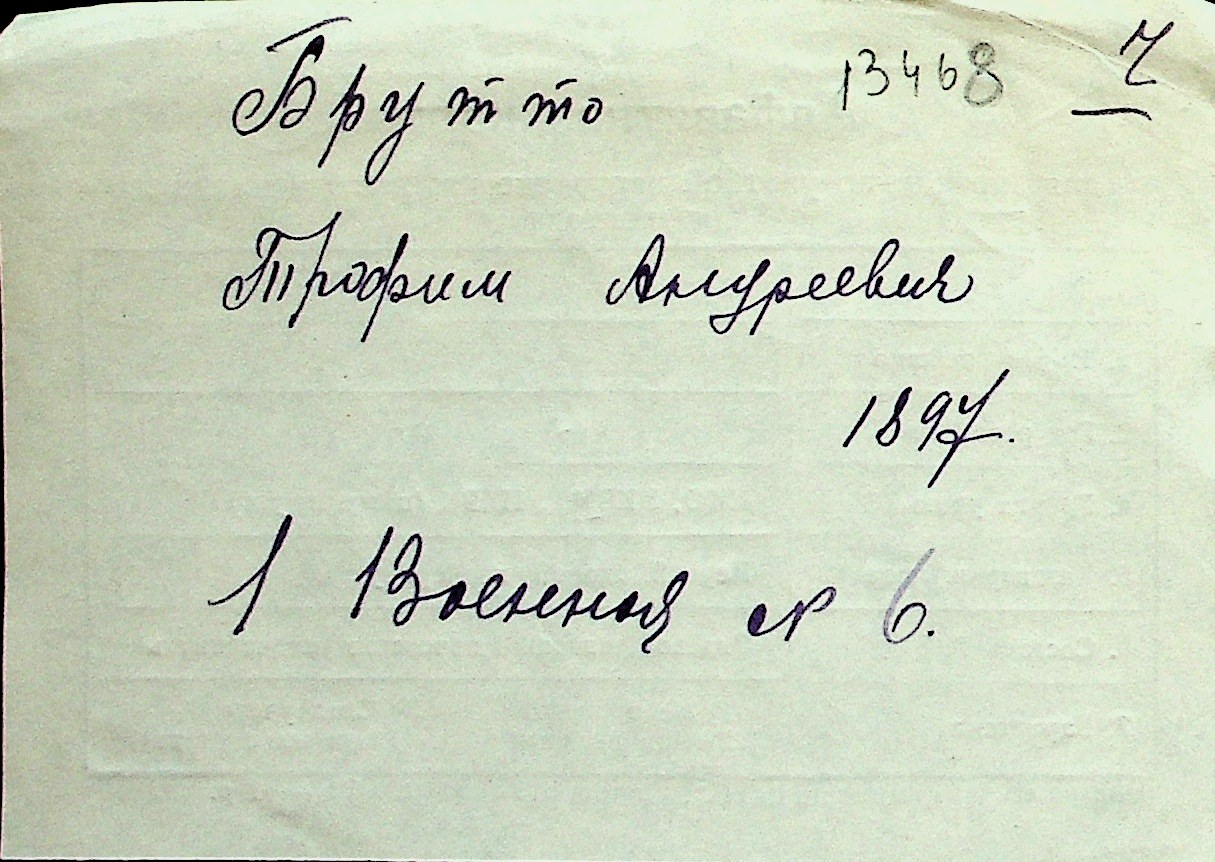 Брутто 13468 7
Трофим Андреевич
1897.
1 Военная № 6.